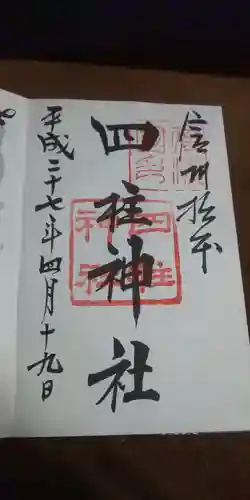 信州松本
四柱神社
平成二十七年四月十九日
四柱神社